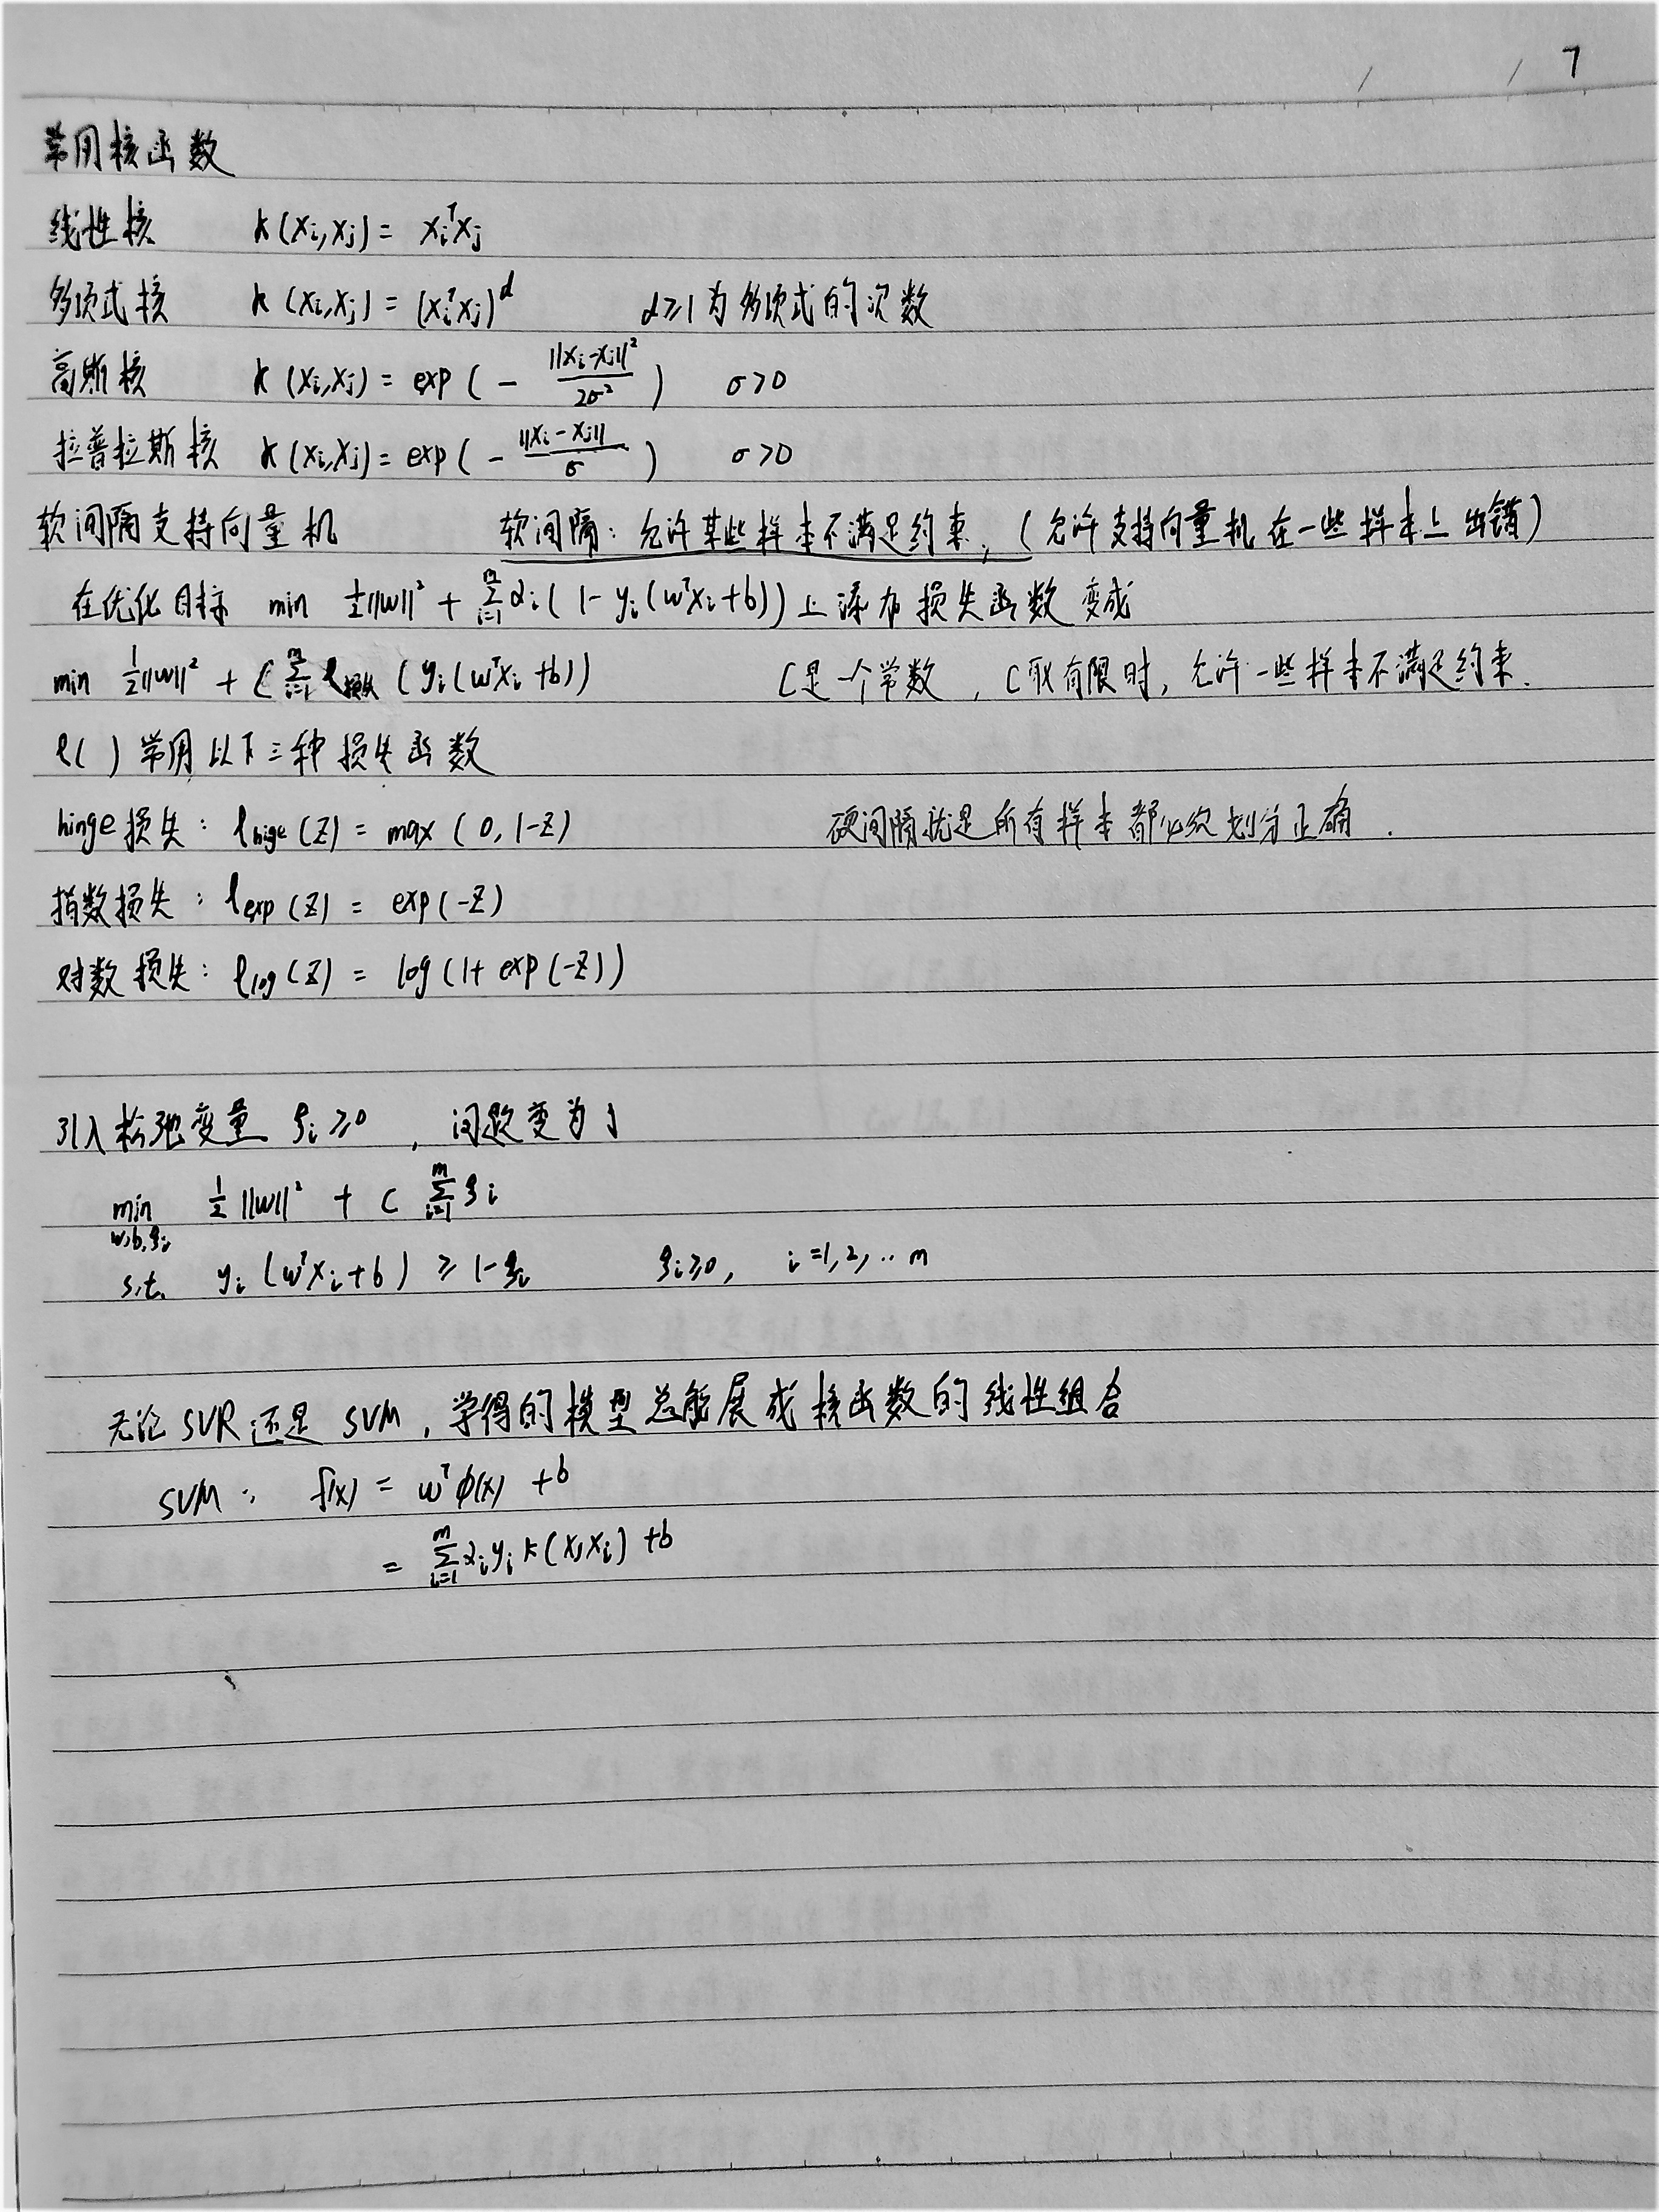 7
常用核函数
线性核 k(xi,xj) = xiᵀxj
多项式核 k(xi,xj) = (xiᵀxj)^d d≥1为多项式的次数
高斯核 k(xi,xj) = exp(- ||xi-xj||²/2σ²) σ>0
拉普拉斯核 k(xi,xj) = exp(- ||xi-xj||/σ) σ>0
软间隔支持向量机 软间隔:允许某些样本不满足约束,(允许支持向量机在一些样本上出错)
在优化目标 min ½||w||² + Σ_{i=1}^m αi(1-yi(wᵀxi+b))上添加损失函数变成
min ½||w||² + C Σ_{i=1}^m ℓ损失(yi(wᵀxi+b)) C是一个常数,C取有限时,允许一些样本不满足约束.
ℓ( )常用以下三种损失函数
hinge损失: ℓhige(Z) = max(0,1-Z) 硬间隔就是所有样本都必须划分正确.
指数损失: ℓexp(Z) = exp(-Z)
对数损失: ℓlog(Z) = log(1+exp(-Z))
引入松弛变量 ξi≥0 ,问题变为了
min_{w,b,ξi} ½||w||² + C Σ_{i=1}^m ξi
s.t. yi(wᵀxi+b) ≥ 1-ξi ξi≥0, i=1,2,..m
无论SVR还是SVM,学得的模型总能展成核函数的线性组合
SVM: f(x) = wᵀφ(x) +b
= Σ_{i=1}^m αiyik(x,xi) +b